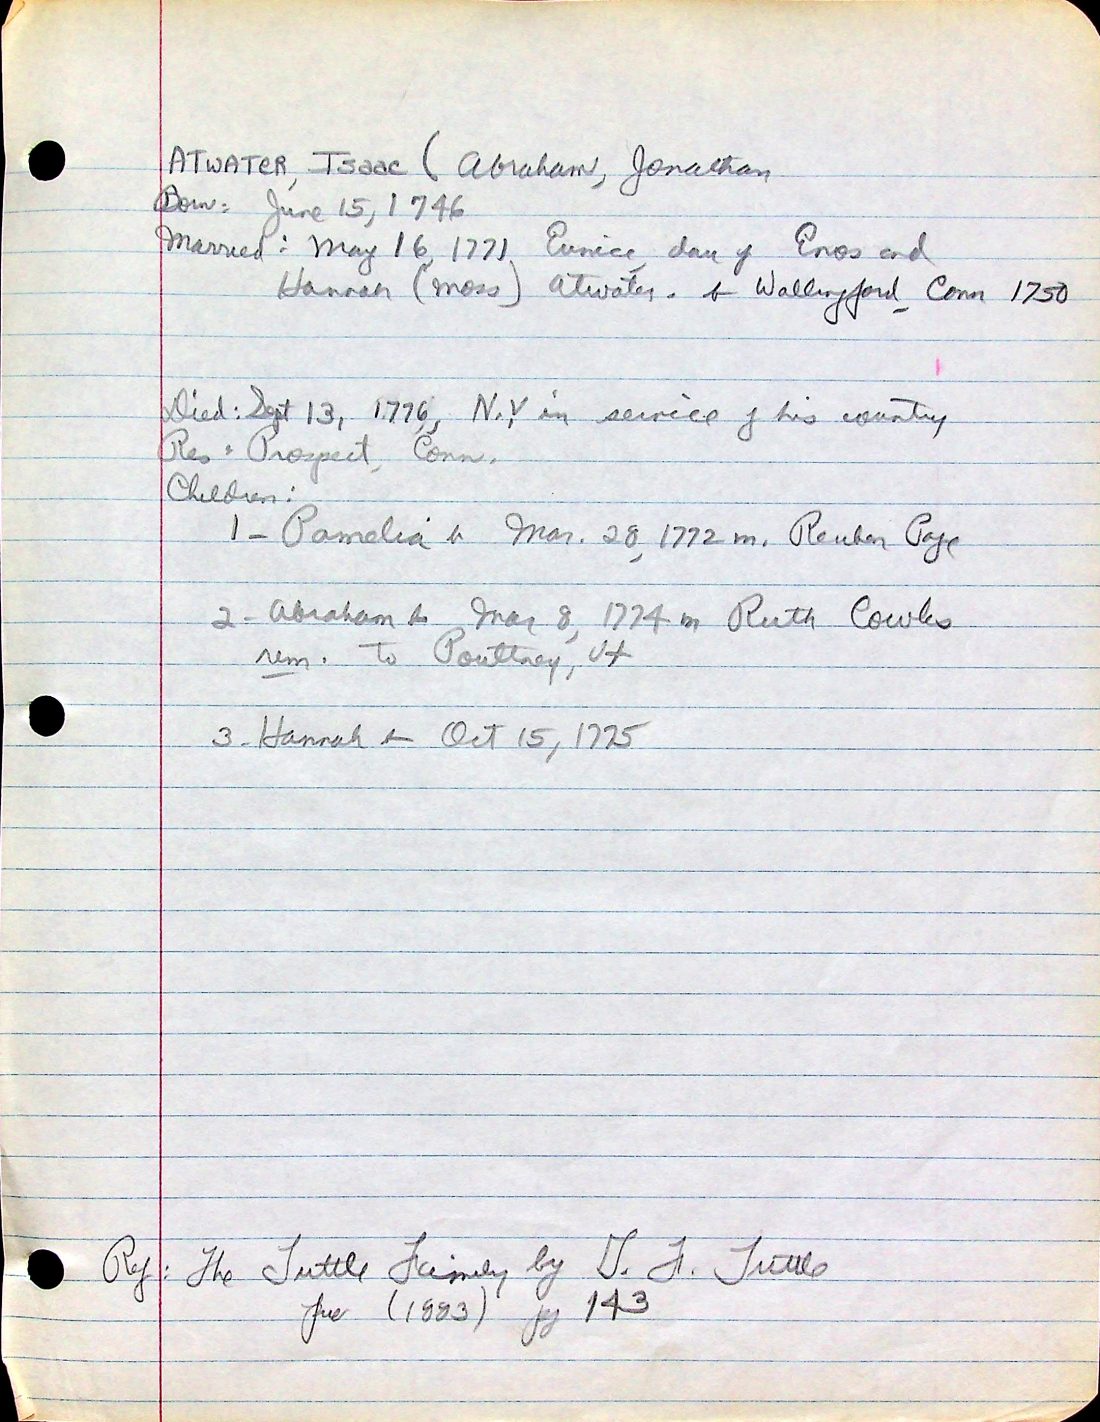 ATWATER, Isaac ( Abraham, Jonathan
Born: June 15, 1746
Married: May 16, 1771 Eunice, dau of Enos and
Hannah (Moss) Atwater. b Wallingford, Conn 1750
Died: Sept 13, 1776, N.Y in service of his country
Res: Prospect, Conn.
Children:
1- Pamelia b Mar. 28, 1772 m. Reuben Page
2- Abraham b Mar 8, 1774 m Ruth Cowles
rem. to Poultney, Vt
3- Hannah b Oct 15, 1775
Ref: The Tuttle Family by G. F. Tuttle
(1883) pg 143